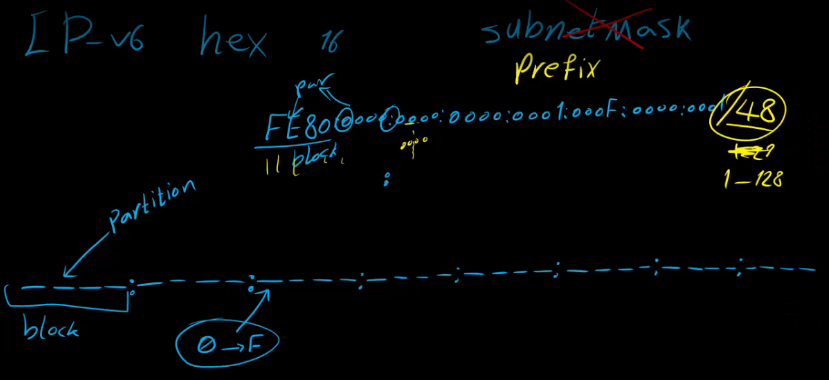 IP-v6 hex 16 subnet Mask
Prefix
par
FE80:0000:0000:0000:0001:000F:0000:0001/48
block
1-128
Partition
block
0→F